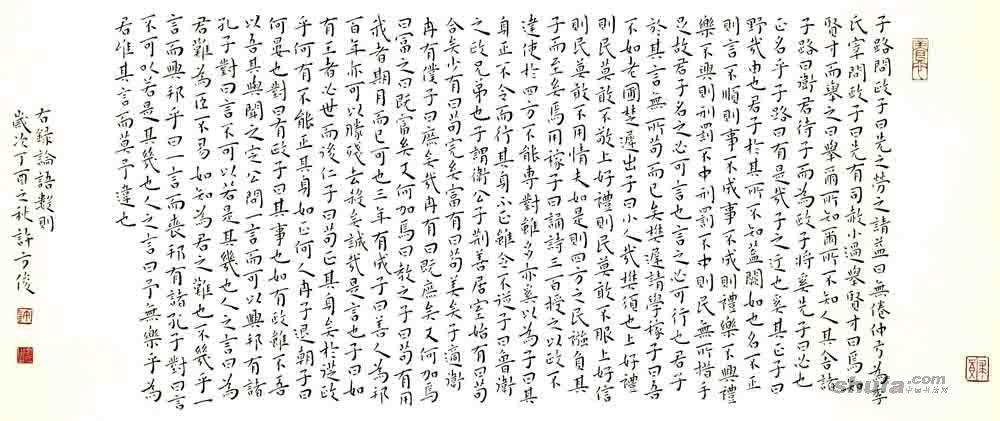 子路問政子曰先之勞之請益曰無倦仲弓為季
氏宰問政子曰先有司赦小過舉賢才曰焉知
賢才而舉之曰舉爾所知爾所不知人其舍諸
子路曰衛君待子而為政子將奚先子曰必也
正名乎子路曰有是哉子之迂也奚其正子曰
野哉由也君子於其所不知蓋闕如也名不正
則言不順則事不成事不成則禮樂不興禮
樂不興則刑罰不中刑罰不中則民無所措手
足故君子名之必可言也言之必可行也君子
於其言無所苟而已矣樊遲請學稼子曰吾
不如老圃樊遲出子曰小人哉樊須也上好禮
則民莫敢不敬上好禮則民莫敢不服上好信
則民莫敢不用情夫如是則四方之民襁負其
子而至矣焉用稼子曰誦詩三百授之以政不
達使於四方不能專對雖多亦奚以為子曰其
身正不令而行其身不正雖令不從子曰魯衛
之政兄弟也子謂衛公子荊善居室始有曰苟
合矣少有曰苟完矣富有曰苟美矣子適衛
冉有僕子曰庶矣哉冉有曰既庶矣又何加焉
曰富之曰既富矣又何加焉曰教之子曰苟有用
我者期月而已可也三年有成子曰善人為邦
百年亦可以勝殘去殺矣誠哉是言也子曰如
有王者必世而後仁子曰苟正其身矣於從政
乎何有不能正其身如正何人冉子退朝子曰
何晏也對曰有政子曰其事也如有政雖不吾
以吾其與聞之定公問一言而可以興邦有諸
孔子對曰言不可以若是其幾也人之言曰為
君難為臣不易如知為君之難也不幾乎一
言而興邦乎曰一言而喪邦有諸孔子對曰言
不可以若是其幾也人之言曰予無樂乎為
君唯其言而莫予違也
右錄論語數則
歲次丁酉之秋 許方俊
shufa.com